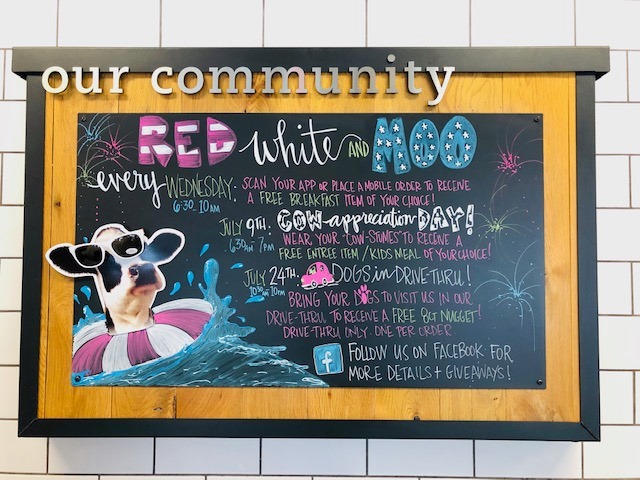 our community
RED white AND MOO
every WEDNESDAY: SCAN YOUR APP OR PLACE A MOBILE ORDER TO RECEIVE
6:30-10am A FREE BREAKFAST ITEM OF YOUR CHOICE!
JULY 9TH. COW-appreciation-DAY!
6:30am-7pm WEAR YOUR "COW-STUMES" TO RECEIVE A
FREE ENTREE ITEM / KIDS MEAL OF YOUR CHOICE!
JULY 24TH. DOGS in DRIVE-THRU!
10:30am-10pm BRING YOUR DOGS TO VISIT US IN OUR
DRIVE-THRU TO RECEIVE A FREE 8CT NUGGET!
DRIVE-THRU ONLY. ONE PER ORDER
f FOLLOW US ON FACEBOOK FOR
MORE DETAILS + GIVEAWAYS!